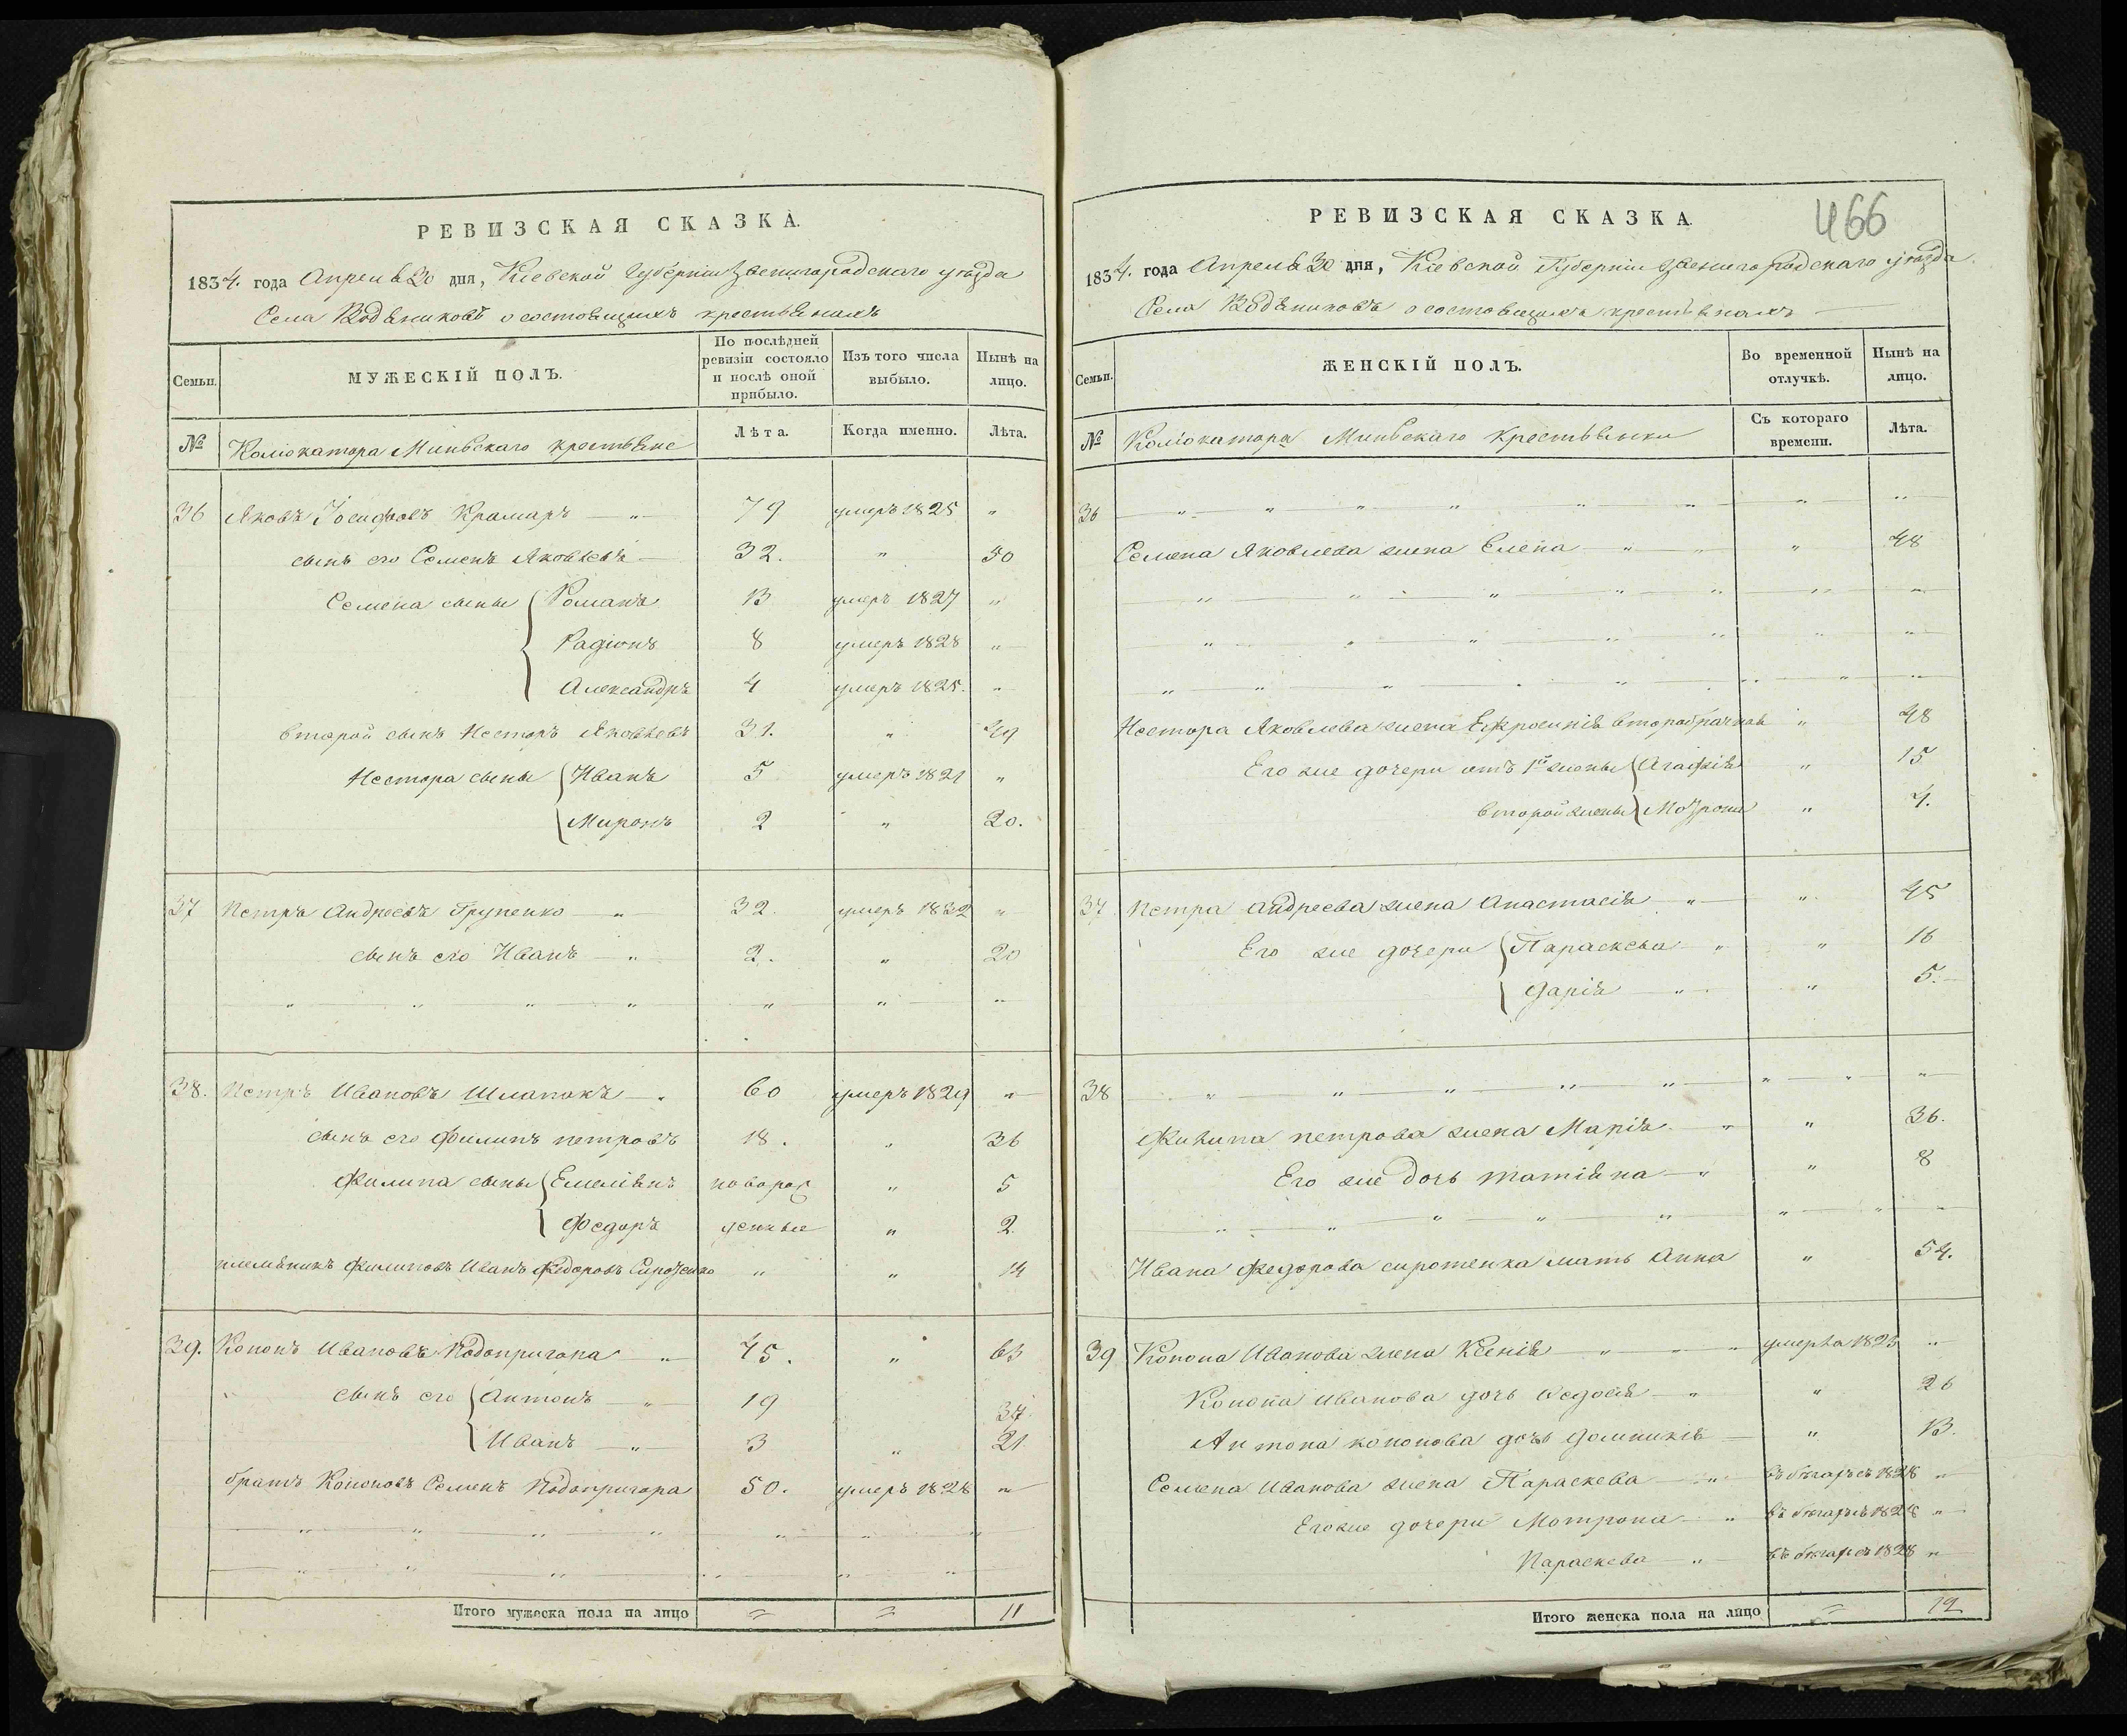 РЕВИЗСКАЯ СКАЗКА.
1834. года Апреля 30 дня, Киевской Губернии Звенигородскаго уезда
Села Водяниковъ о состоящихъ крестьянахъ
Семьи.
МУЖЕСКІЙ ПОЛЪ.
По послѣдней ревизіи состояло и послѣ оной прибыло.
Изъ того числа выбыло.
Нынѣ на лицо.
№
крестьяне
Лѣта.
Когда именно.
Лѣта.
36 Яковъ Іосифовъ Крамаръ — 79 умеръ 1825 "
сынъ его Семенъ Яковлевъ — 32. " 50
Семена сыны { Романъ 13 умеръ 1827 "
Радіонъ 8 умеръ 1828 "
Александръ 4 умеръ 1825. "
второй сынъ Несторъ Яковлевъ 31. " 49
Нестора сыны { Иванъ 5 умеръ 1821 "
Миронъ 2 " 20.
37 Петръ Андреевъ Групенко — 32. умеръ 1832 "
сынъ его Иванъ — 2. " 20
38. Петръ Ивановъ Шлапакъ — 60 умеръ 1829 "
сынъ его Филипъ петровъ 18. " 36
Филипа сыны { Емеліянъ новорож " 5
Федоръ денные " 2.
племяникъ Филиповъ Иванъ Федоровъ Сиротенко " " 14
39. Кононъ Ивановъ Подопригора " 45. " 63
сынъ его { Антонъ — 19 37.
Иванъ — 3 " 21.
братъ Кононовъ Семенъ Подопригора 50. умеръ 1828 "
Итого мужеска пола на лицо = = 11
РЕВИЗСКАЯ СКАЗКА
466
1834. года Апреля 30 дня, Кіевской Губерніи Звенигородскаго уезда.
Села Водяниковъ о состоящихъ крестьянахъ —
Семьи.
ЖЕНСКІЙ ПОЛЪ.
Во временной отлучкѣ.
Нынѣ на лицо.
№
крестьянки
Съ котораго времени.
Лѣта.
36
Семена Яковлева жена Елена " " 48
Нестора Яковлева жена Ефросинія второбрачная " 48
Его же дочери отъ 1й жены { Агафія " 15
второй жены { Мотрона " 4.
37. Петра андреева жена Анастасія " " 45
Его же дочери { Параскева " " 16
Дарія " " 5.
38
Филипа петрова жена Марія " " 36.
Его же дочь татіяна " " 8
Ивана Федорова сиротенка мать Анна " 54.
39 Конона Иванова жена Ксенія " умерла 1823 "
Конона иванова дочь Федосія " " 26
Антона кононова дочь Домникія " 13.
Семена Иванова жена Параскева " въ бѣгахъ съ 1828 "
Его же дочери Мотрона " въ бѣгахъ съ 1828 "
Параскева " въ бѣгахъ съ 1828 "
Итого женска пола на лицо = 12